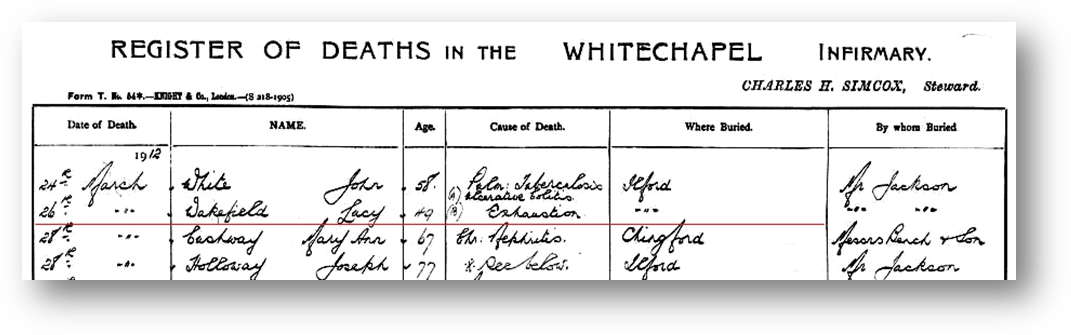 REGISTER OF DEATHS IN THE WHITECHAPEL INFIRMARY.
CHARLES H. SIMCOX, Steward.
Form T. No. 54*.—KNIGHT & Co., London.—(S 218-1905)
Date of Death. NAME. Age. Cause of Death. Where Buried. By whom Buried
1912
24th March White John 58. Pulm: Tuberculosis Ilford Mr Jackson
(a) Ulcerative Colitis.
26th " Wakefield Lucy 49 (b) Exhaustion. " " "
28th " Eastway Mary Ann 67 Chr. Nephritis. Chingford Messrs & Son
28th " Holloway Joseph 77 * See below. Ilford Mr Jackson